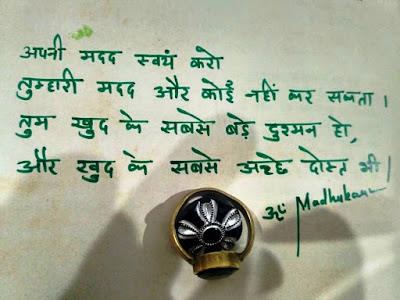 अपनी मदद स्वयं करो
तुम्हारी मदद और कोई नहीं कर सकता ।
तुम खुद के सबसे बड़े दुश्मन हो,
और खुद के सबसे अच्छे दोस्त भी |
ॐ Madhukar